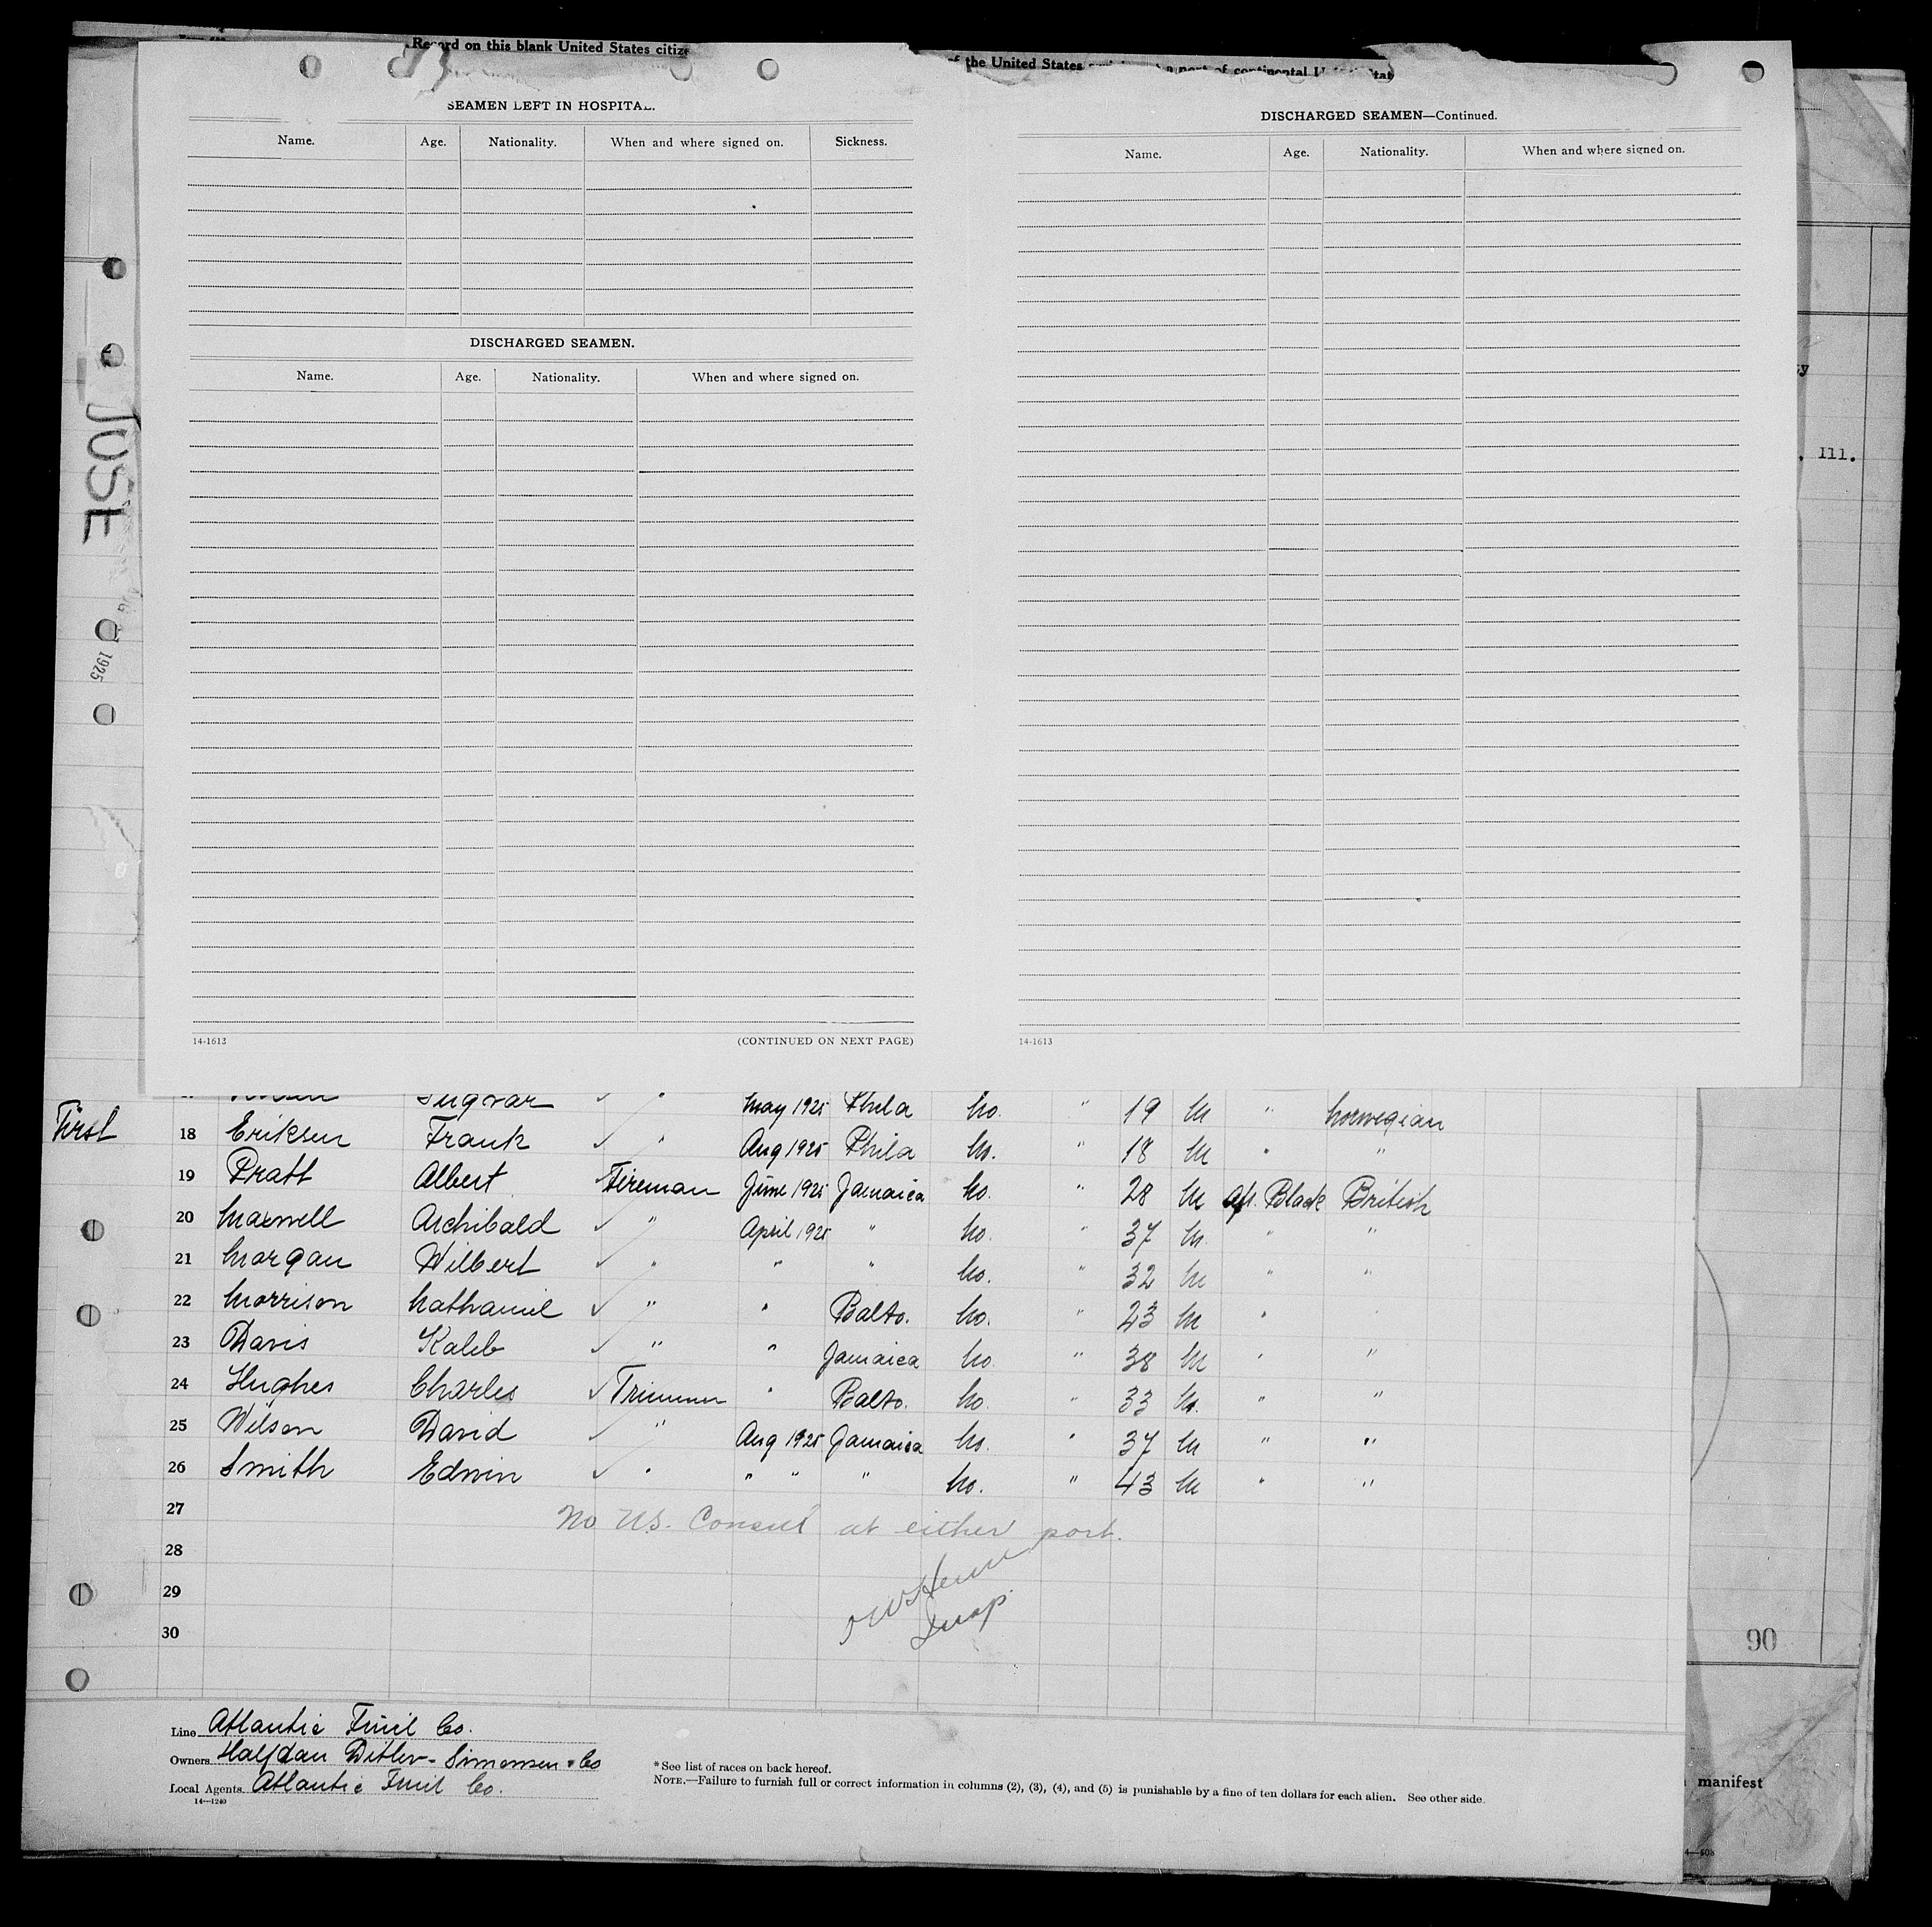 Record on this blank United States citize
of the United States
a port of continental
SEAMEN LEFT IN HOSPITAL.
Name. Age. Nationality. When and where signed on. Sickness.
DISCHARGED SEAMEN.
Name. Age. Nationality. When and where signed on.
14-1613 (CONTINUED ON NEXT PAGE)
DISCHARGED SEAMEN—Continued.
Name. Age. Nationality. When and where signed on.
14-1613
, Ill.
JOSE
1925
Ingvar ✓ " May 1925 Phila No. " 19 M " Norwegian
First
18 Eriksen Frank ✓ " Aug 1925 Phila No. " 18 M " "
19 Pratt Albert Fireman June 1925 Jamaica No. " 28 M Af. Black British
20 Maxwell Archibald ✓ " April 1925 " No. " 37 M. " "
21 Morgan Wilbert ✓ " " " No. " 32 M " "
22 Morrison Nathaniel ✓ " " Balto. No. " 23 M "
23 Davis Kaleb ✓ " " Jamaica No. " 38 M " "
24 Hughes Charles ✓ Trimmer " Balto. No. " 33 M. " "
25 Wilson David ✓ " Aug 1925 Jamaica No. " 37 M " "
26 Smith Edwin ✓ " " " " No. " 43 M " "
27
No U.S. Consul at either port.
28
29
Insp.
30
90
Line Atlantic Fruit Co.
Owners Halfdan Ditlev-Simonsen & Co
Local Agents Atlantic Fruit Co.
14—1240
*See list of races on back hereof.
NOTE.—Failure to furnish full or correct information in columns (2), (3), (4), and (5) is punishable by a fine of ten dollars for each alien. See other side.
manifest